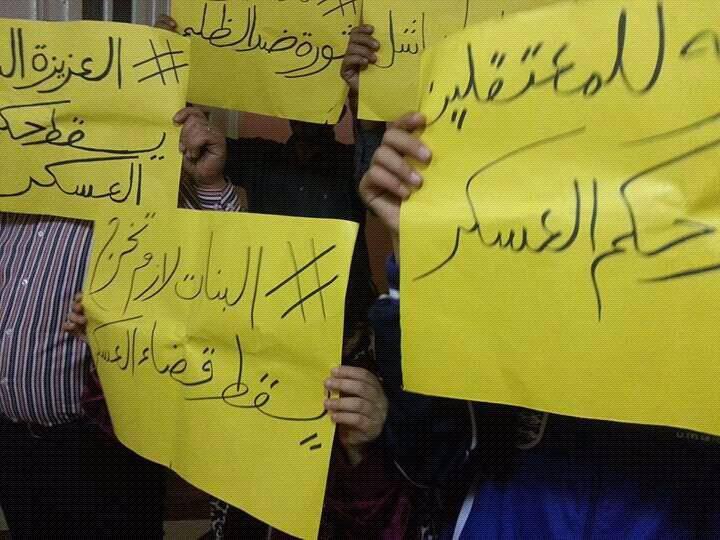 # العزيزة
يسقط حكم
العسكر
#
ثورة ضد الظلم
للمعتقلين
حكم العسكر
# البنات لازم تخرج
يسقط قضاء العسكر